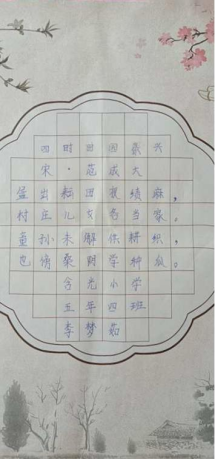 四时田园杂兴
宋·范成大
昼出耘田夜绩麻，
村庄儿女各当家，
童孙未解供耕织，
也傍桑阴学种瓜。
含光小学
五年四班
李梦茹